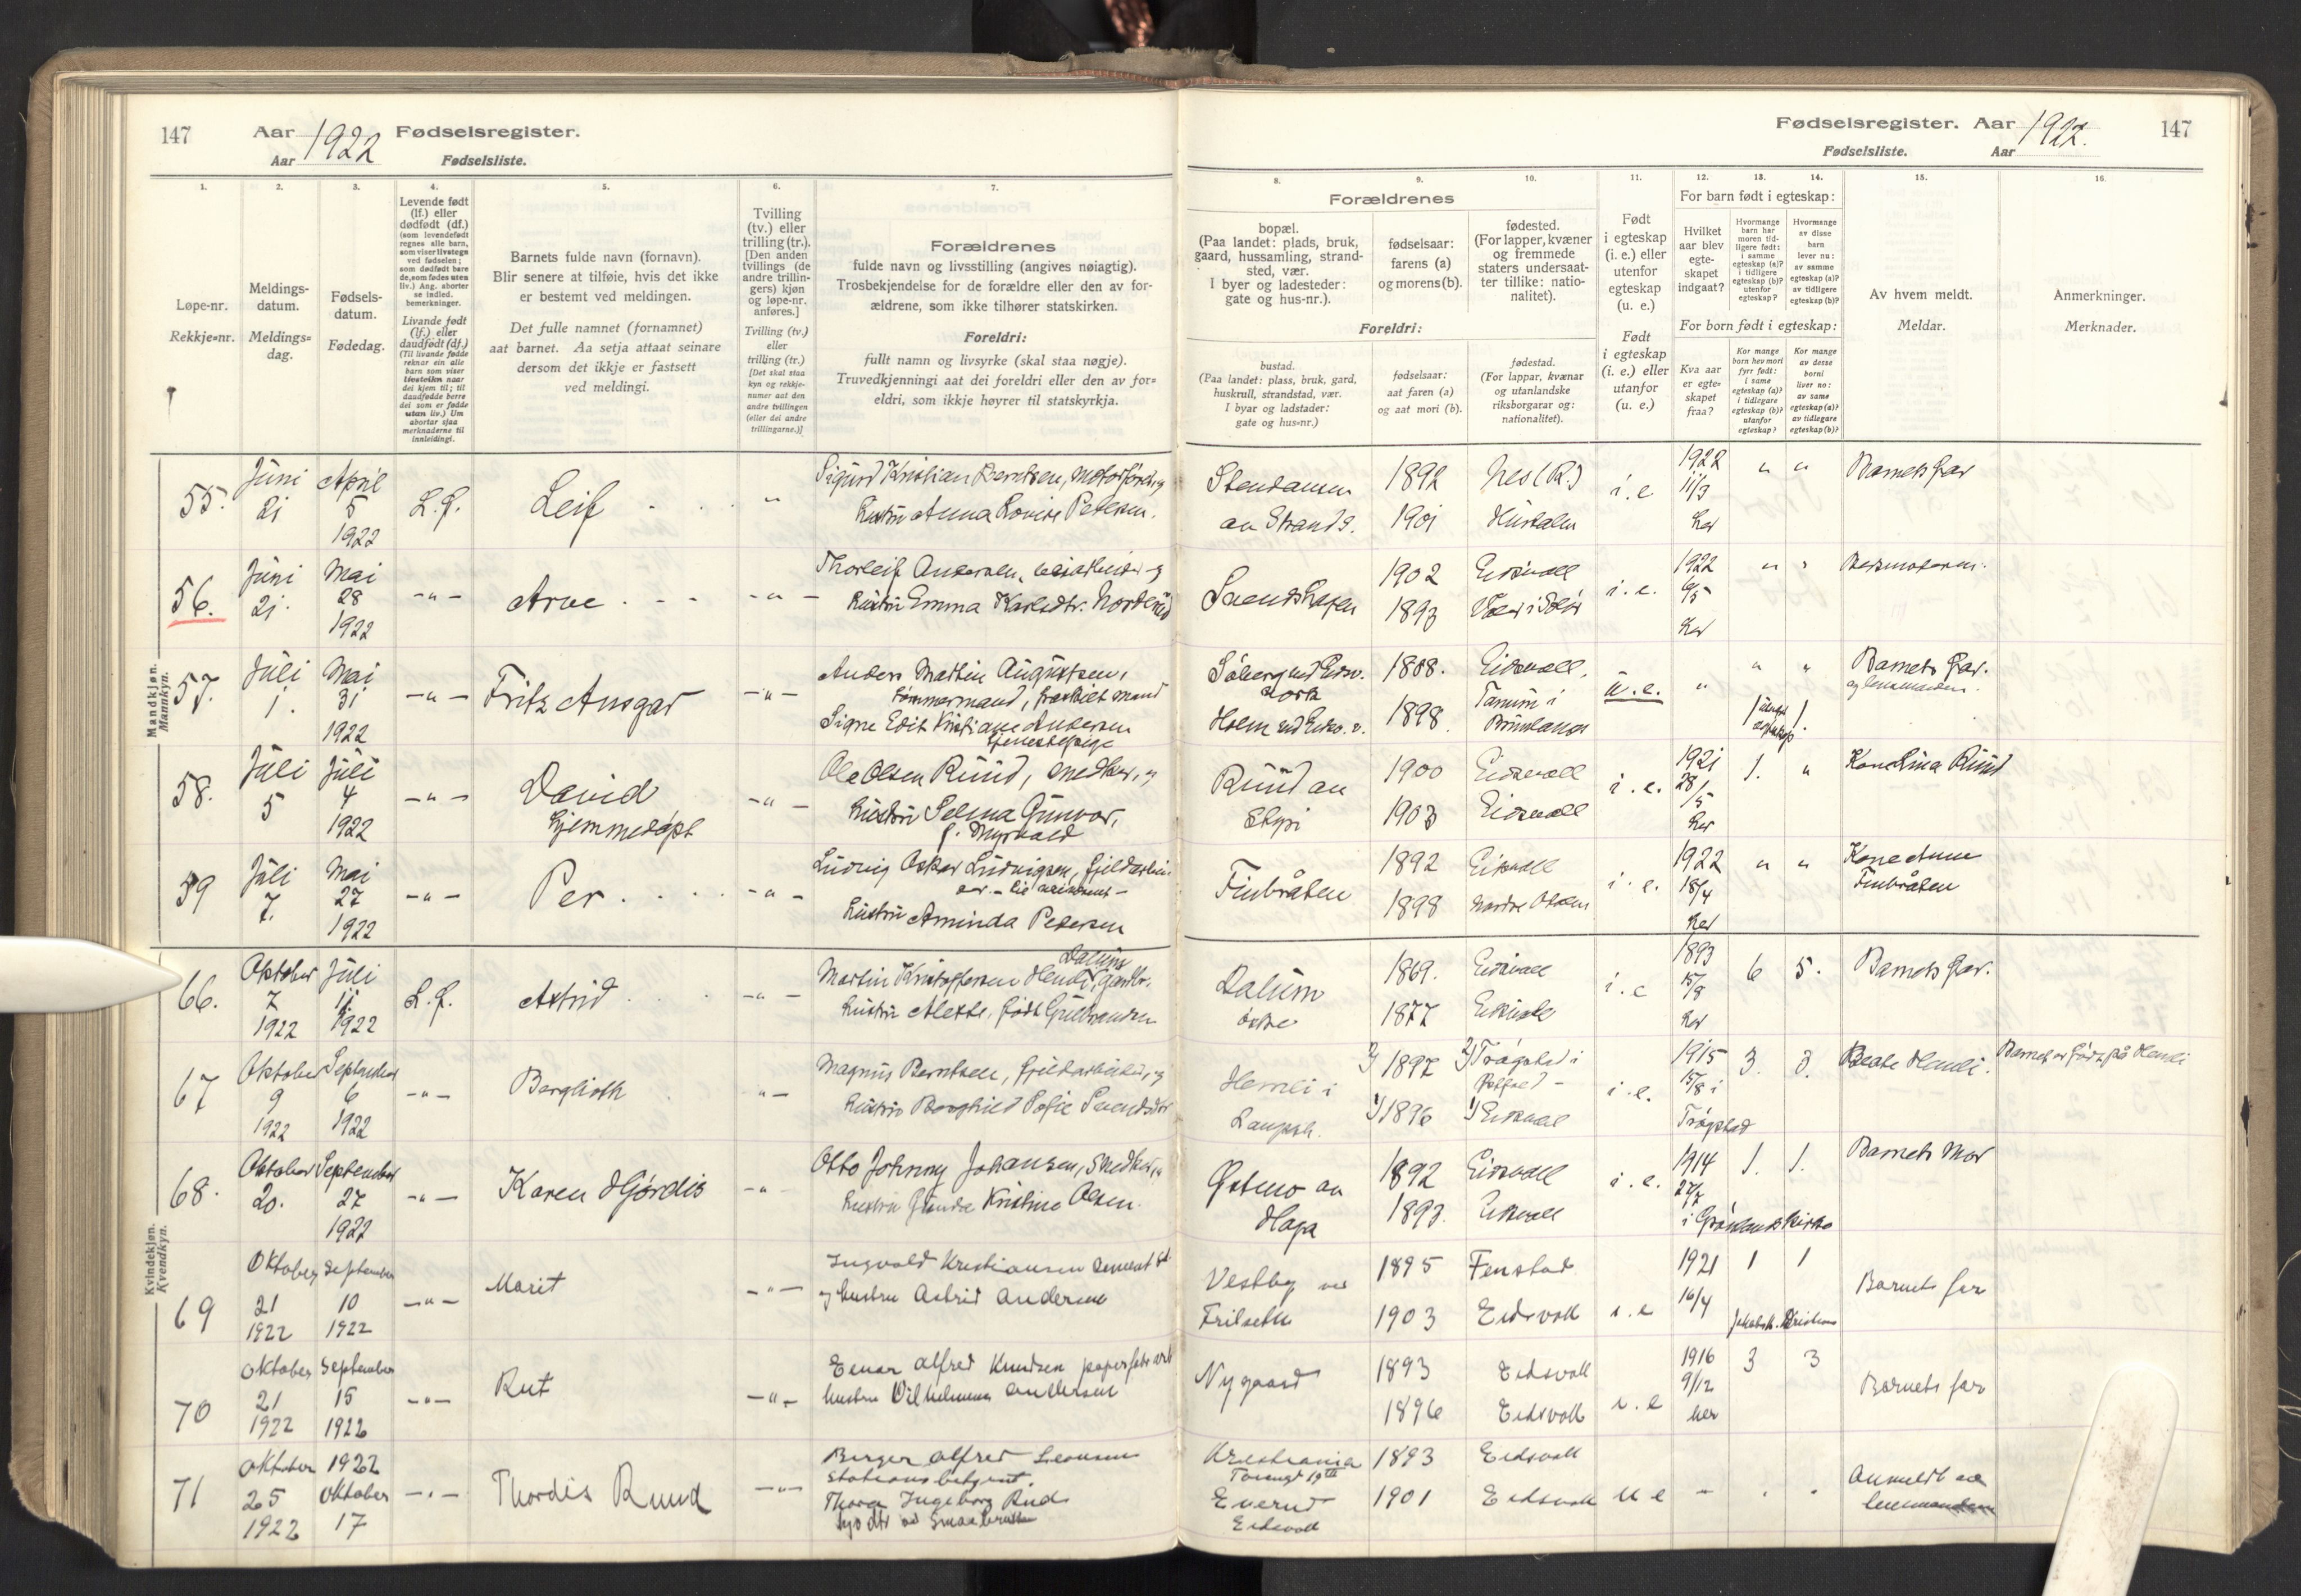 147 Aar 1922 Fødselsregister.
Aar Fødselsliste.
Fødselsregister. Aar 1922. 147
Fødselsliste. Aar
1. 2. 3. 4. 5. 6. 7.
8. 9. 10. 11. 12. 13. 14. 15. 16.
Løpe-nr.
Rekkje=nr.
Meldings-
datum.
Meldings=
dag.
Fødsels-
datum.
Fødedag.
Levende født
(lf.) eller
dødfødt (df.)
(som levendefødt
regnes alle barn,
som viser livstegn
ved fødselen;
som dødfødt bare
de, som fødes uten
liv.) Ang. aborter
se indled.
bemerkninger.
Livande født
(lf.) eller
daudfødt (df.)
(Til livande fødde
reknar ein alle
barn som viser
livsteikn naar
dei kjem til; til
daudfødde berre
dei som er fødde
utan liv.) Um
abortar sjaa
merknaderne til
innleidingi.
Barnets fulde navn (fornavn).
Blir senere at tilføie, hvis det ikke
er bestemt ved meldingen.
Det fulle namnet (fornamnet)
aat barnet. Aa setja attaat seinare
dersom det ikkje er fastsett
ved meldingi.
Tvilling
(tv.) eller
trilling (tr.).
[Den anden
tvillings (de
andre trillin-
gers) kjøn
og løpe-nr.
anføres.]
Tvilling (tv.)
eller
trilling (tr.)
[Det skal staa
kyn og rekkje-
numer aat den
andre tvillingen
(eller dei andre
trillingarne.)]
Forældrenes
fulde navn og livsstilling (angives nøiagtig).
Trosbekjendelse for de forældre eller den av for-
ældrene, som ikke tilhører statskirken.
Foreldri:
fullt namn og livsyrke (skal staa nøgje).
Truvedkjenningi aat dei foreldri eller den av for=
eldri, som ikkje høyrer til statskyrkja.
Forældrenes
bopæl.
(Paa landet: plads, bruk,
gaard, hussamling, strand-
sted, vær.
I byer og ladesteder:
gate og hus-nr.).
fødselsaar:
farens (a)
og morens (b).
fødested.
(For lapper, kvæner
og fremmede
staters undersaat-
ter tillike: natio-
nalitet).
Foreldri:
bustad.
(Paa landet: plass, bruk, gard,
huskrull, strandstad, vær.
I byar og ladstader:
gate og hus=nr.)
fødselsaar:
aat faren (a)
og aat mori (b).
fødestad.
(For lappar, kvænar
og utanlandske
riksborgarar og:
nationalitet).
Født
i egteskap
(i. e.) eller
utenfor
egteskap
(u. e.)
Født
i egteskap
(i. e.) eller
utanfor
(u. e.)
For barn født i egteskap:
Hvilket
aar blev
egte-
skapet
indgaat?
Hvormange
barn har
moren tid-
ligere født:
i samme
egteskap (a)?
i tidligere
egteskap (b)?
utenfor
egteskap?
Hvormange
av disse
barn
lever nu:
av samme
egteskap (a)?
av tidligere
egteskap (b)?
For born født i egteskap:
Kva aar
er egte=
skapet
fraa?
Kor mange
born hev mori
fyrr født:
i same
egteskap (a)?
i tidlegare
egteskap (b)?
utanfor
egteskap?
Kor mange
av desse
borni
liver no:
av same
egteskap (a)?
av tidlegare
egteskap (b)?
Av hvem meldt.
Meldar.
Anmerkninger.
Merknader.
Mandkjøn.
Mannkyn.
55. Juni 21 April 5 1922 L.f. Leif
Sigurd Kristian Berntsen, motorfører, og
Hustru Anna Lovise Petersen.
1892 Nes (R.)
1901
i. e. 1922 11/3 her
Barnets far
56. Juni 21. Mai 28 1922 Arve
Thorleif Andersen, og
Hustru Emma Karlsdtr. Norderud
1902 Eidsvoll
1893 Våler i Solør
i. e. 1922 6/5 her
57. Juli 1. Mai 31 1922 Fritz Ansgar
Anders Martin Augustsen,
tømmermand, fraskilt mand
Signe Edit Kristiane Andersen
tjenestepige
1888. Eidsvoll.
1898. Tanum i
Brunlanes
u. e. 1 1.
Barnets far.
og lensmanden.
58. Juli 5 Juli 4 1922 David
hjemmedøpt
Ole Olsen Ruud, snedker, og
Hustru Selma Gunvor,
f. Myrvold
Ruud av
Styri
1900 Eidsvoll
1903 Eidsvoll
i. e. 1921 28/5 her 1.
Kone Lina Ruud
59 Juli 7. Mai 27 1922 Per
Ludvig Oskar Ludvigsen, fjeldarbei-
Hustru Aminda Pedersen
Finbråten
1892 Eidsvoll
1898 Nordre Odalen
i. e. 1922 18/4 her
Kone Anne
Finbråten
Kvindekjøn.
Kvendkyn.
66. Oktober 7 1922 Juli 11 1922 L.f. Astrid
Dalum
Martin Kristoffersen Hemli, gardbr.
Hustru Alette, født Gulbrandsen
Dalum
østre
1869. Eidsvoll
1877 Eidsvoll
i. e 1893 15/8 her 6 5.
Barnets far.
67 Oktober 9 1922 September 6 1922 Berglioth
Magnus Berntsen, fjeldarbeider, og
Hustru Borghild Sofie Svendsdtr
Hemli i
Langset.
2) 1897 2) Trøgstad i
Østfold -
1) 1896 1) Eidsvoll
i. e. 1915 15/8 i
Trøgstad
3. 3.
Beate Hemli.
Barnet er født på Hemli
68. Oktober 20. September 27 1922 Karen Hjørdis
Otto Johnny Johansen, snedker, og
Hustru Gunda Kristine Olsen.
Østmo av
Haga
1892 Eidsvoll
1893. Eidsvoll
i. e. 1914 27/7 1. 1.
i Grønlands kirke
Barnets Mor
69 Oktober 21 1922 September 10 1922 Marit
Ingvald Kristiansen
og hustru Astrid Andersen
Vestby ved
Frilset
1895 Fenstad
1903 Eidsvoll
i. e 1921 16/4 1 1
Barnets far
70 Oktober 21 1922 September 15 1922 Rut
Einar Alfred Knudsen papirfabr arb
hustru Vilhelmine Andersen
Nygaard
1893 Eidsvoll
1896 Eidsvoll
i. e 1916 9/12 her 3 3
Barnets far
71 Oktober 25 1922 1922 Oktober 17 Thordis Ruud
Birger Alfred Leonsen
stationsbetjent.
Thora Ingeborg Rud
Kristiania
Eidsvoll
1893 Eidsvoll
1901 Eidsvoll
u e
Anmeldt av
lensmanden